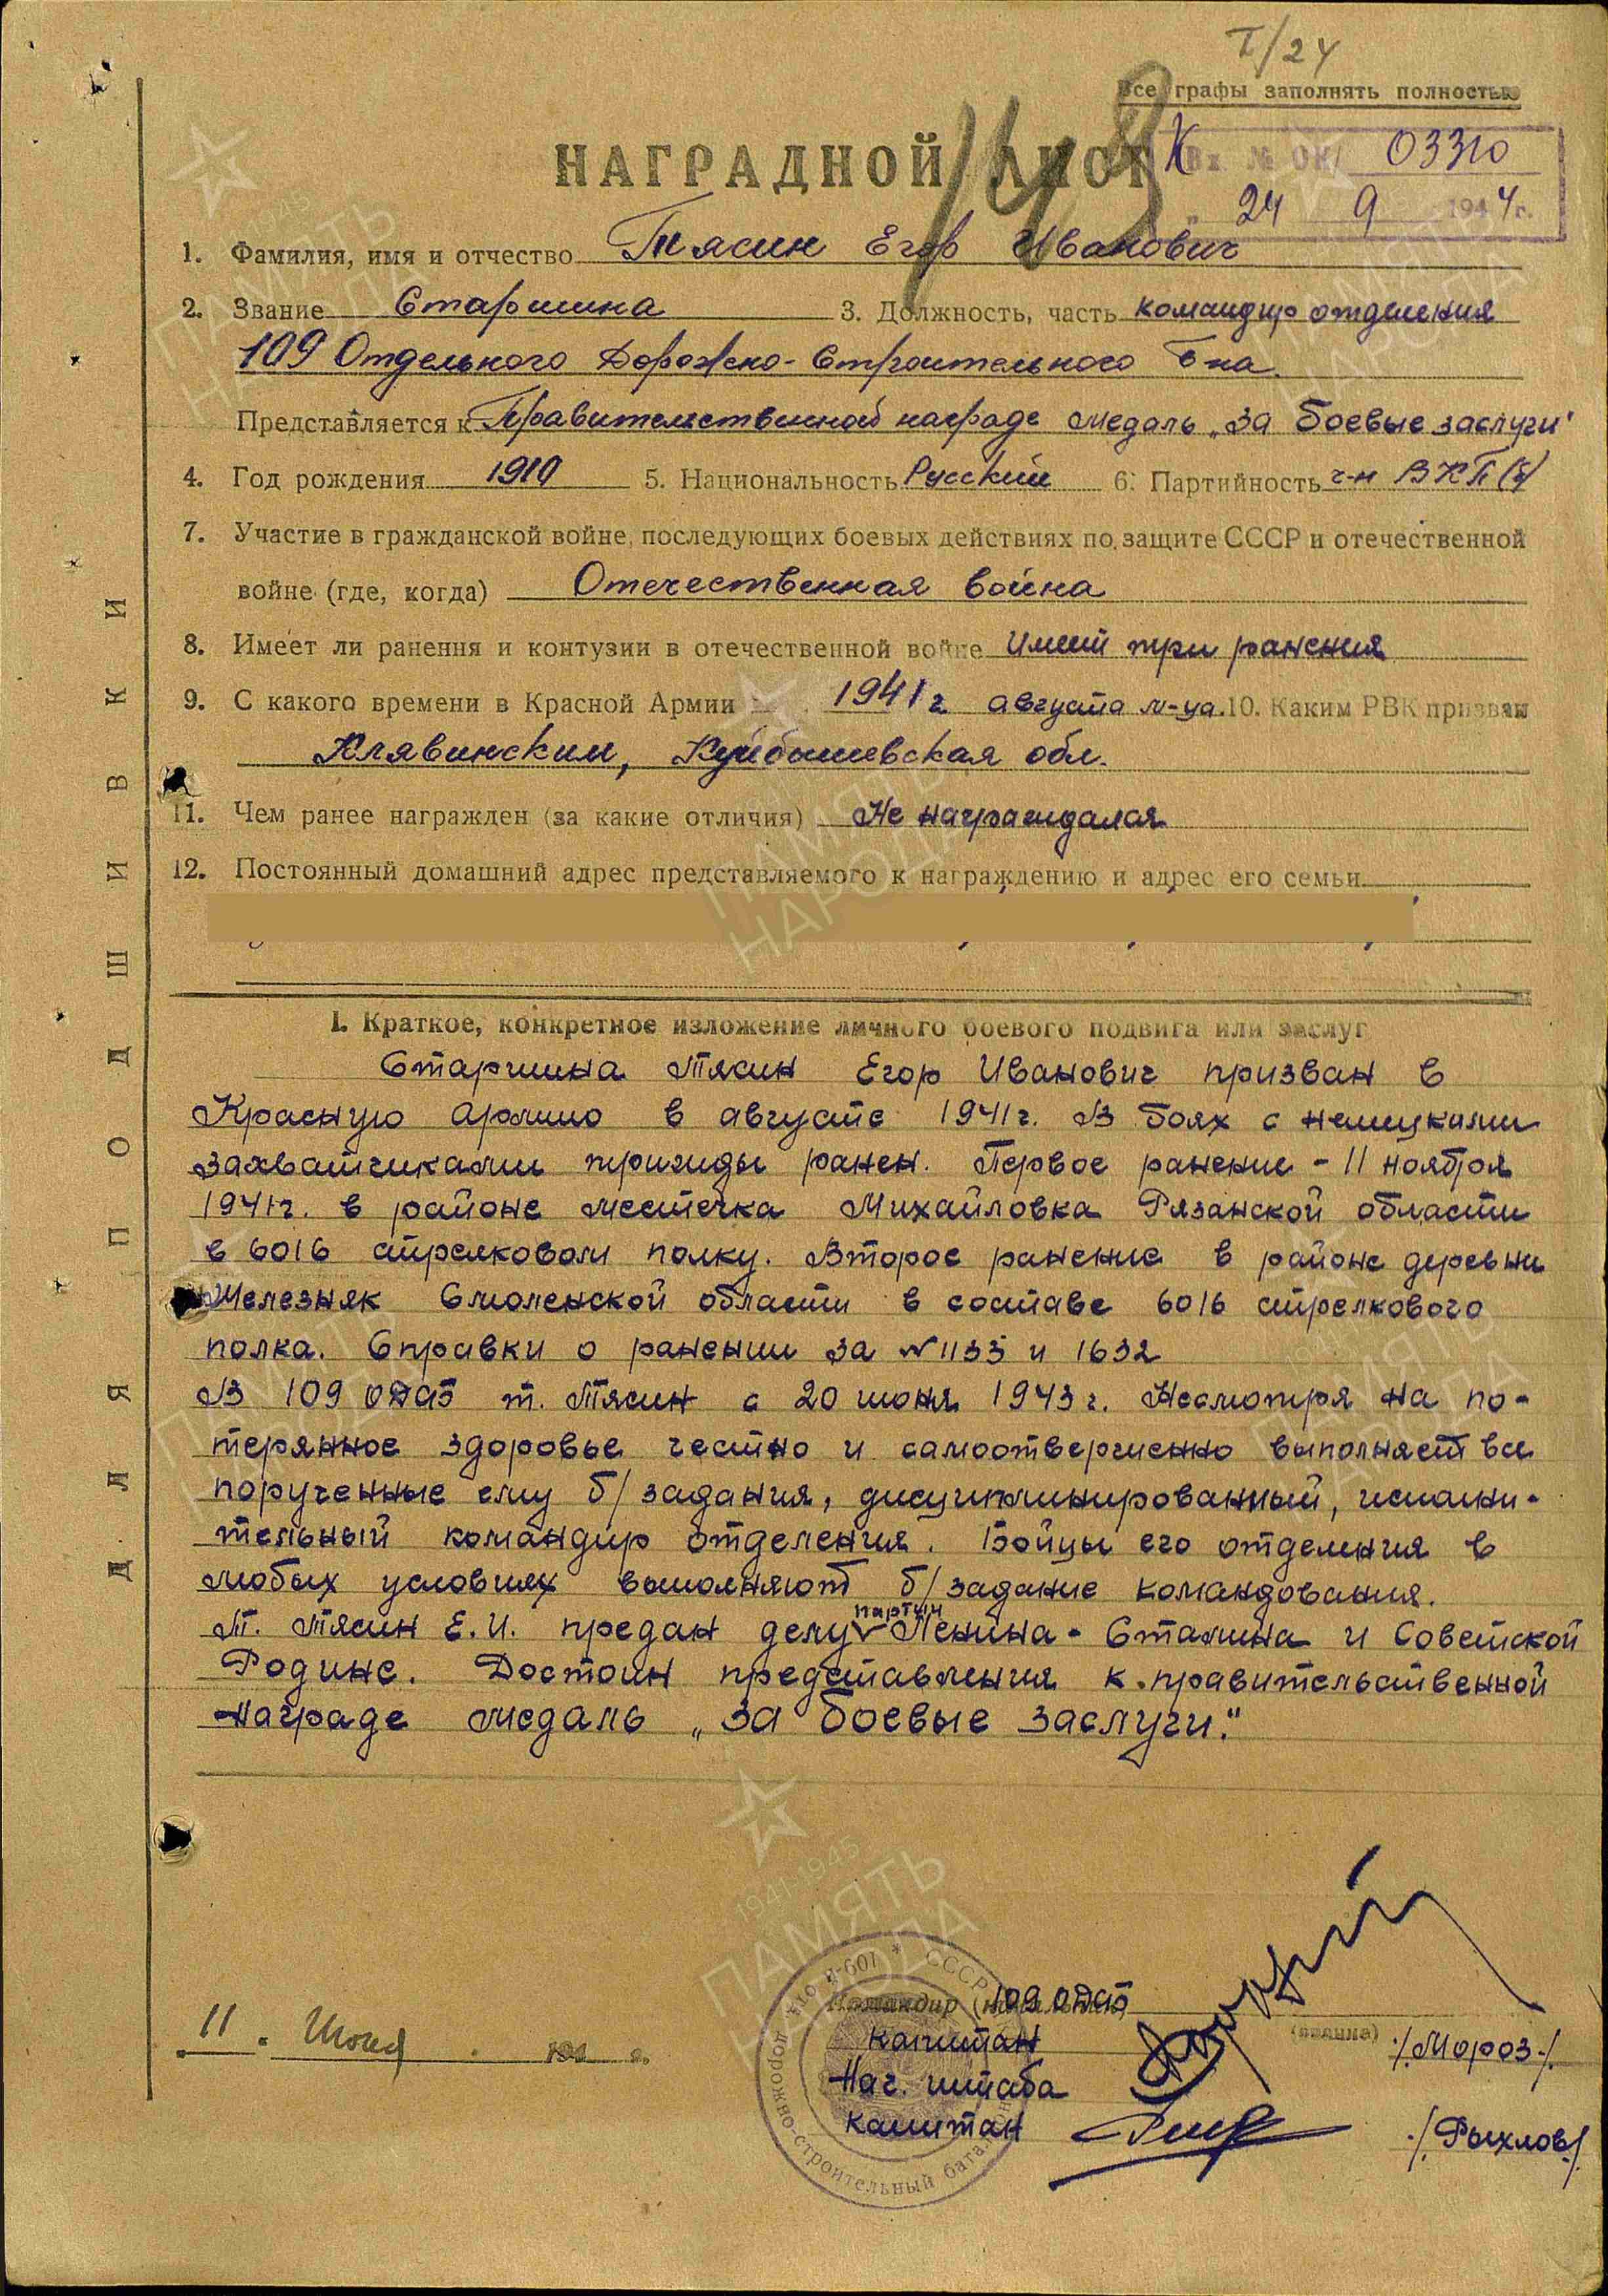 I/24
Все графы заполнять полностью
НАГРАДНОЙ ЛИСТ
Вх № ОК/ 03310
24 9 1944 г.
1. Фамилия, имя и отчество Тясин Егор Иванович
2. Звание Старшина 3. Должность, часть командир отделения
109 Отдельного Дорожно-Строительного б-на
Представляется к Правительственной награде медаль „За боевые заслуги"
4. Год рождения 1910 5. Национальность Русский 6. Партийность ч-н ВКП(б)
7. Участие в гражданской войне, последующих боевых действиях по защите СССР и отечественной
войне (где, когда) Отечественная война
8. Имеет ли ранения и контузии в отечественной войне Имеет три ранения
9. С какого времени в Красной Армии 1941 г. августа м-ца. 10. Каким РВК призван
Клявинским, Куйбышевская обл.
11. Чем ранее награжден (за какие отличия) Не награждался
12. Постоянный домашний адрес представляемого к награждению и адрес его семьи
I. Краткое, конкретное изложение личного боевого подвига или заслуг
Старшина Тясин Егор Иванович призван в
Красную Армию в августе 1941 г. В боях с немецкими
захватчиками трижды ранен. Первое ранение - 11 ноября
1941 г. в районе местечка Михайловка Рязанской области
в 6016 стрелковом полку. Второе ранение в районе деревни
Железняк Смоленской области в составе 6016 стрелкового
полка. Справки о ранении за № 1133 и 1632
В 109 ОДСБ т. Тясин с 20 июня 1943 г. Несмотря на по-
терянное здоровье честно и самоотверженно выполняет все
порученные ему б/задания, дисциплинированный, исполни-
тельный командир отделения. Бойцы его отделения в
любых условиях выполняют б/задание командования.
Т. Тясин Е.И. предан делу партии Ленина-Сталина и Советской
Родине. Достоин представления к правительственной
награде медаль „За боевые заслуги."
Командир (начальник) 109 ОДСБ
капитан /Мороз/
Нач. штаба
капитан /Рыхлов/
11 Июня 194 г.
ДЛЯ ПОДШИВКИ
109-й отд. дорожно-строительный батальон * СССР
1941-1945
ПАМЯТЬ
НАРОДА